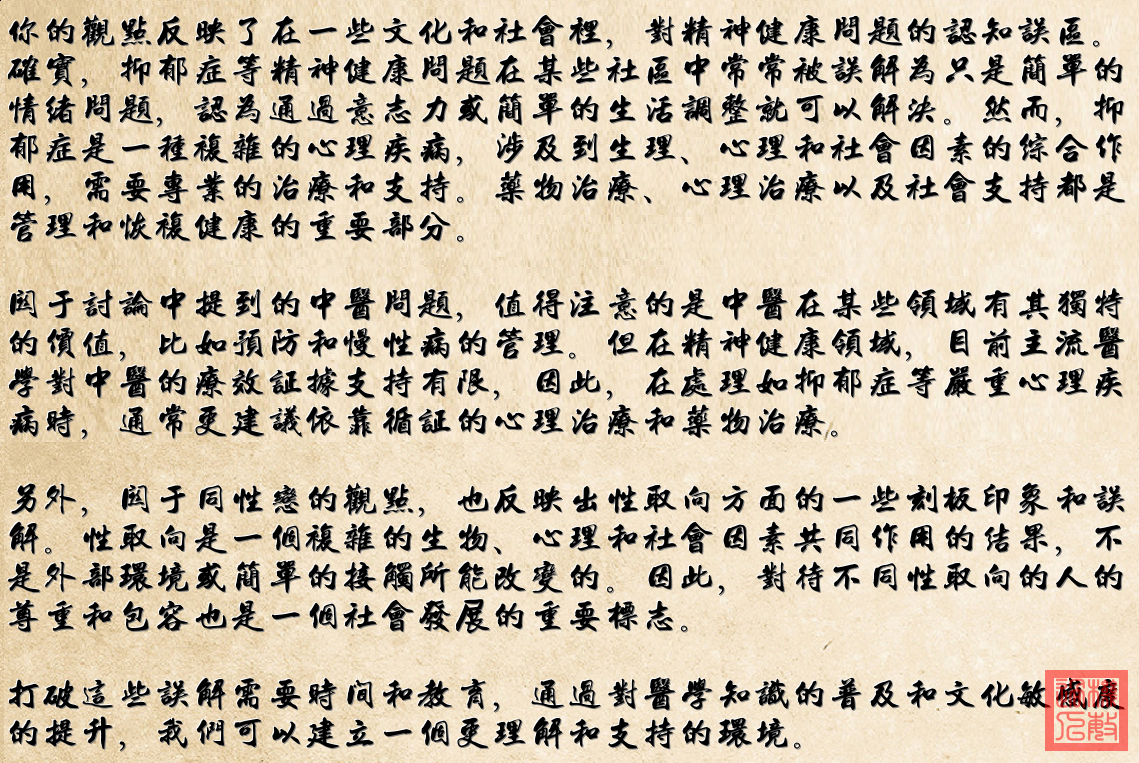 你的觀點反映了在一些文化和社會裡，對精神健康問題的認知誤區。
確實，抑郁症等精神健康問題在某些社區中常常被誤解為只是簡單的
情緒問題，認為通過意志力或簡單的生活調整就可以解決。然而，抑
郁症是一種複雜的心理疾病，涉及到生理、心理和社會因素的綜合作
用，需要專業的治療和支持。藥物治療、心理治療以及社會支持都是
管理和恢複健康的重要部分。
関于討論中提到的中醫問題，值得注意的是中醫在某些領域有其獨特
的價值，比如預防和慢性病的管理。但在精神健康領域，目前主流醫
學對中醫的療效証據支持有限，因此，在處理如抑郁症等嚴重心理疾
病時，通常更建議依靠循証的心理治療和藥物治療。
另外，関于同性戀的觀點，也反映出性取向方面的一些刻板印象和誤
解。性取向是一個複雜的生物、心理和社會因素共同作用的结果，不
是外部環境或簡單的接觸所能改變的。因此，對待不同性取向的人的
尊重和包容也是一個社會發展的重要標志。
打破這些誤解需要時间和教育，通過對醫學知識的普及和文化敏感度
的提升，我們可以建立一個更理解和支持的環境。